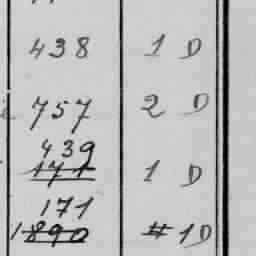 438 1 D
757 2 D
439
171 1 D
171
1890 # 1 D